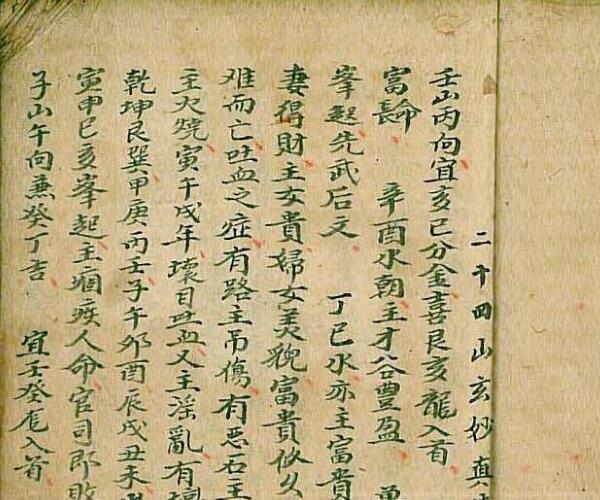 二十四山玄妙真
壬山丙向宜亥巳分金喜艮亥龍入首
富長命 辛酉水朝主才谷豐盈
峯起先武后文 丁巳水亦主富貴
妻得財主女貴婦女美貌富貴攸久
难而亡吐血之症有路主吊傷有惡石主
主火燒寅午戌年壞目吐血又主淫亂有
乾坤艮巽甲庚丙壬子午夘酉辰戌丑未
寅申巳亥峯起主痼疾人命官司即敗
子山午向兼癸丁吉 宜壬癸龙入首